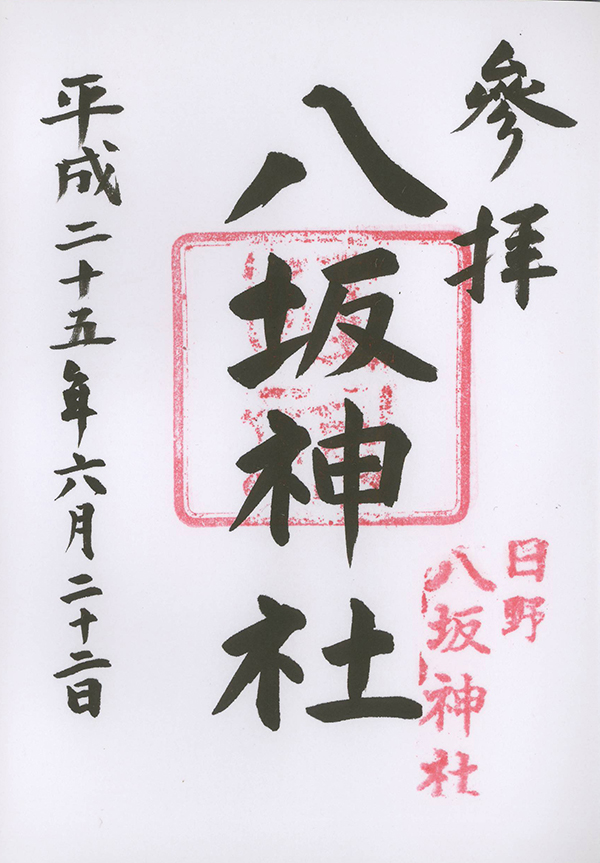 參拝
八坂神社
日野
八坂神社
平成二十五年六月二十二日